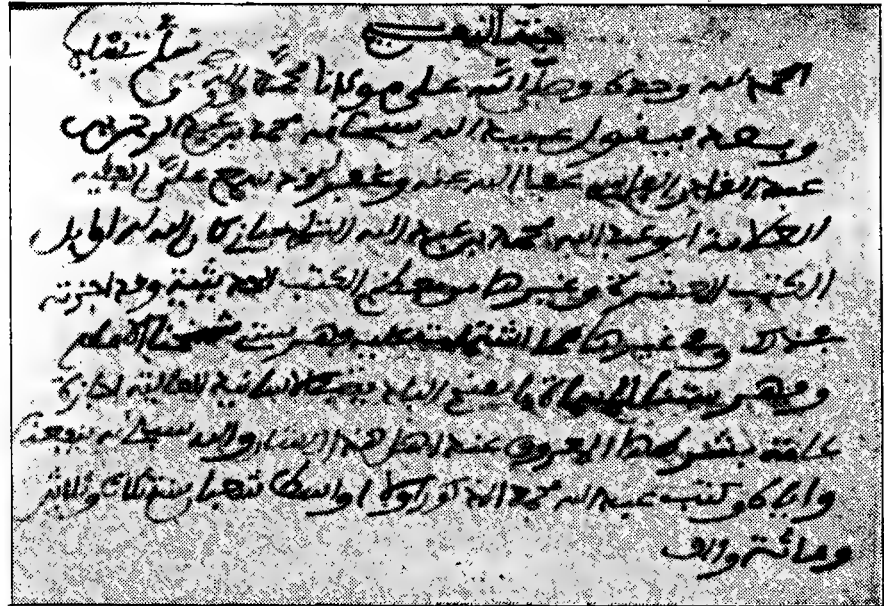 الحمد لله وحده وصلى الله على مولانا محمد وآله
وبعد فيقول عبيد الله سبحانه محمد بن عبد الرحمن
عبد القادر الفاسي عفا الله عنه وغفر له سمع علي الفقيه
العلامة أبو عبد الله محمد بن عبد الله
الكتب العشرة وغيرها من بعض الكتب الحديثية وقد أجزته
بذلك وبغيرها مما اشتملت عليه فهرسة شيخنا الإمام
وفهرستنا المسماة بالمنح البادية في الأسانيد العالية إجازة
عامة بشرطها المعروف عند أهل هذا الشأن والله سبحانه ينفعنا
وإياه وكتب عبد الله محمد المذكور أولا أواسط شعبان سنة ثلاث وثلاثين
ومائة وألف